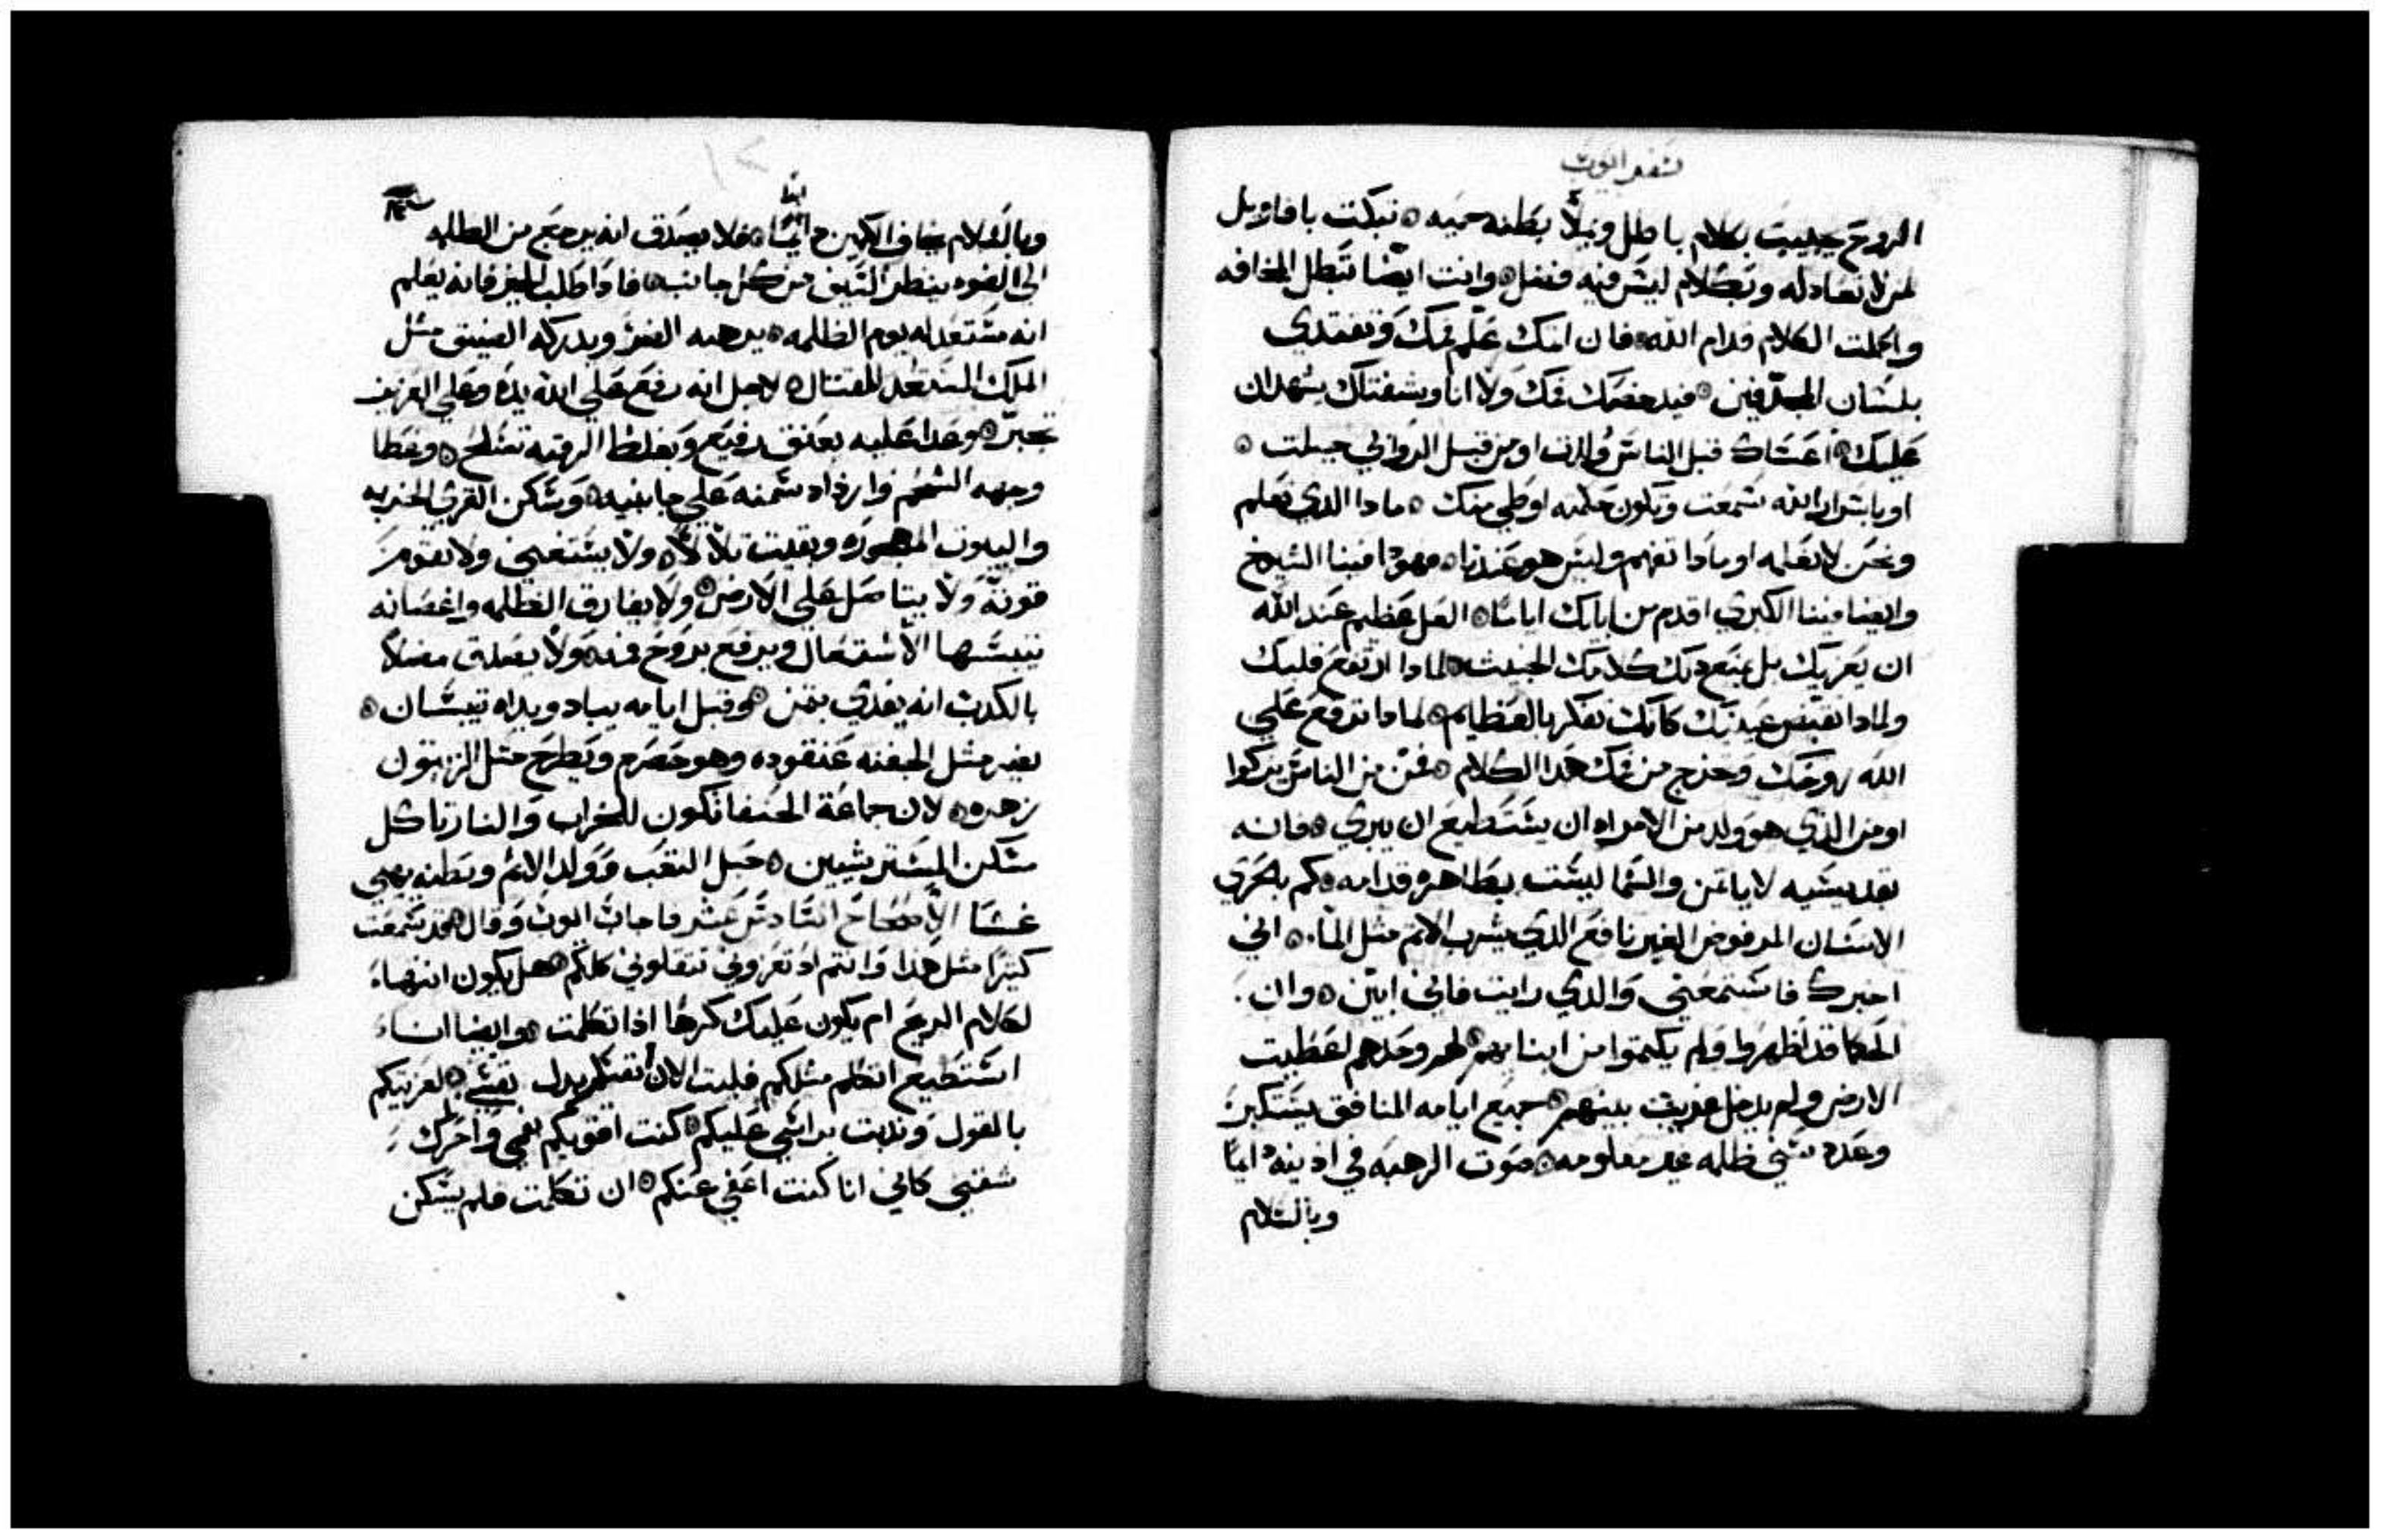 سفر ايوب
الروح يجيب بكلام باطل ويملا بطنه حميه ۞ تبكت باقاويل
لمن لا تعادله وبكلام ليس فيه فضل ۞ وانت ايضا تبطل المخافه
واكملت الكلام قدام الله ۞ فان اثمك علم فمك وتقتدي
بلسان المجدفين ۞ فيدحضك فمك ولا انا وشفتاك يشهدان
عليك ۞ اعساك قبل الناس ولدت او من قبل الروابي جبلت ۞
او باسرار الله سمعت وتكون حكمته اوطي منك ۞ ماذا الذي تعلم
ونحن لا نعلمه او ماذا تفهم وليس هو عندنا ۞ فهوذا فينا الشيوخ
وايضا فينا الكبري اقدم من ابايك اياما ۞ العل عظيم عند الله
ان يعزيك بل يمنع ذلك كلامك الخبيث ۞ لماذا ارتفع قلبك
ولماذا تقبض عينيك كانك تفكر بالعظايم ۞ لماذا ترفع علي
الله روحك وتخرج من فمك هذا الكلام ۞ فمن من الناس يتزكوا
او من الذي هو ولد من الامراه ان يستطيع ان يبري ۞ فانه
بقديسيه لا ياتمن والسما ليست بطاهره قدامه ۞ كم بالحري
الانسان المرفوض الغير نافع الذي يشرب الاثم مثل الما ۞ اني
اخبرك فاستمعني والذي رايت فاني ابين ۞ وان
الحكما قد اظهروا ولم يكتموا من ابنايهم ۞ لهم وحدهم اعطيت
الارض ولم يدخل غريب بينهم ۞ جميع ايامه المنافق يستكبر
وعدد سني ظلمه غير معلومه ۞ صوت الرهبه في اذنيه دايما
وبالسلام
وبالسلام يخاف الكمين دايما ۞ فلا يصدق انه يرجع من الظلمه
الي الضوء ينظر السيف من كل جانب ۞ فاذا طلب الخبز فانه يعلم
انه مستعد له يوم الظلمه ۞ يرهبه الضر ويدركه الضيق مثل
الملك المستعد للقتال ۞ لاجل انه رفع علي الله يده وعلي العزيز
تجبر ۞ وعدا عليه بعنق رفيع وبغلظ الرقبه تسلح ۞ وغطا
وجهه الشحم وازداد سمنه علي جانبيه ۞ وسكن القري الخربه
والبيوت المهجوره وبقيت تلالا ۞ ولا يستغني ولا تقوم
قوته ولا يتاصل علي الارض ۞ ولا يفارق الظلمه واغصانه
ييبسها الاشتعال ويرفع بروح فمه ۞ ولا يصدق مضلا
بالكدب انه يفدي بثمن ۞ وقبل ايامه يباد ويداه تيبسان ۞
يضر مثل الجفنه عنقوده وهو حصرم ويطرح مثل الزيتون
زهره ۞ لان جماعة الحنفا تكون للخراب والنار تاكل
مسكن المسترشيين ۞ حبل التعب وولد الاثم وبطنه يهيي
غشا الاصحاح السادس عشر فاجاب ايوب وقال ۞ قد سمعت
كثيرا مثل هذا وانتم اذ تعزوني تثقلوني كلكم ۞ هل يكون انتهاء
لكلام الريح ام يكون عليك كرها اذا تكلمت ۞ وايضا انا
استطيع اتكلم مثلكم فليت الان انفسكم بدل نفسي ۞ لعزيتكم
بالقول ونديت براسي عليكم ۞ كنت اقويكم بفمي واحرك
شفتي كاني انا كنت اعفي عنكم ۞ ان تكلمت فلم يسكن